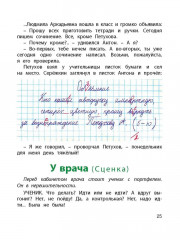 ...Людмила Аркадьевна вошла в класс и громко объявила:
— Прошу всех приготовить тетради и ручки. Сегодня
пишем сочинение. Все, кроме Петухова.
— Почему кроме?.. — удивился Антон. — А я?
— Во-первых, тебе нечем писать. А во-вторых, ты уже
сегодня одно сочинение написал. Так что садись и не мешай
остальным.
Петухов взял у учительницы листок бумаги и сел
на место. Серёжкин заглянул в листок Антона и прочёл:
Объявление
Кто нашёл авторучку
цвет
за вознаграждение. Петухову А. (5-«а»)
— Я же говорил, — проворчал Петухов, — понедельник
для меня день тяжёлый!
У врача (Сценка)
Перед кабинетом врача стоит ученик с портфелем.
Он в нерешительности.
УЧЕНИК. Что делать? Идти или не идти? А вдруг вы-
гонит? Нет, не пойду! Но как же?.. Нет, надо ид-
ти. Была не была!
25